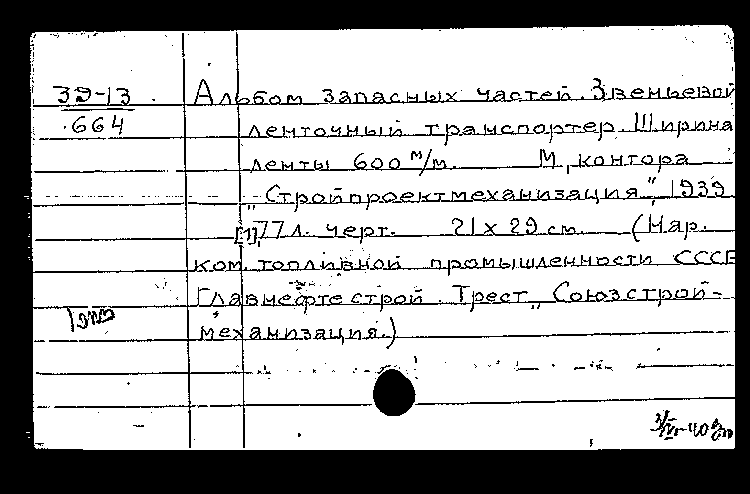 39-13
664
Альбом запасных частей. Звеньевой
ленточный транспортер. Ширина
ленты 600 м/м. М, контора
"Стройпроектмеханизация", 1939
[1], 77 л. черт. 21 x 29 см. (Нар.
ком. топливной промышленности СССР
Главнефтестрой. Трест "Союзстрой-
механизация.)
3/IV-40